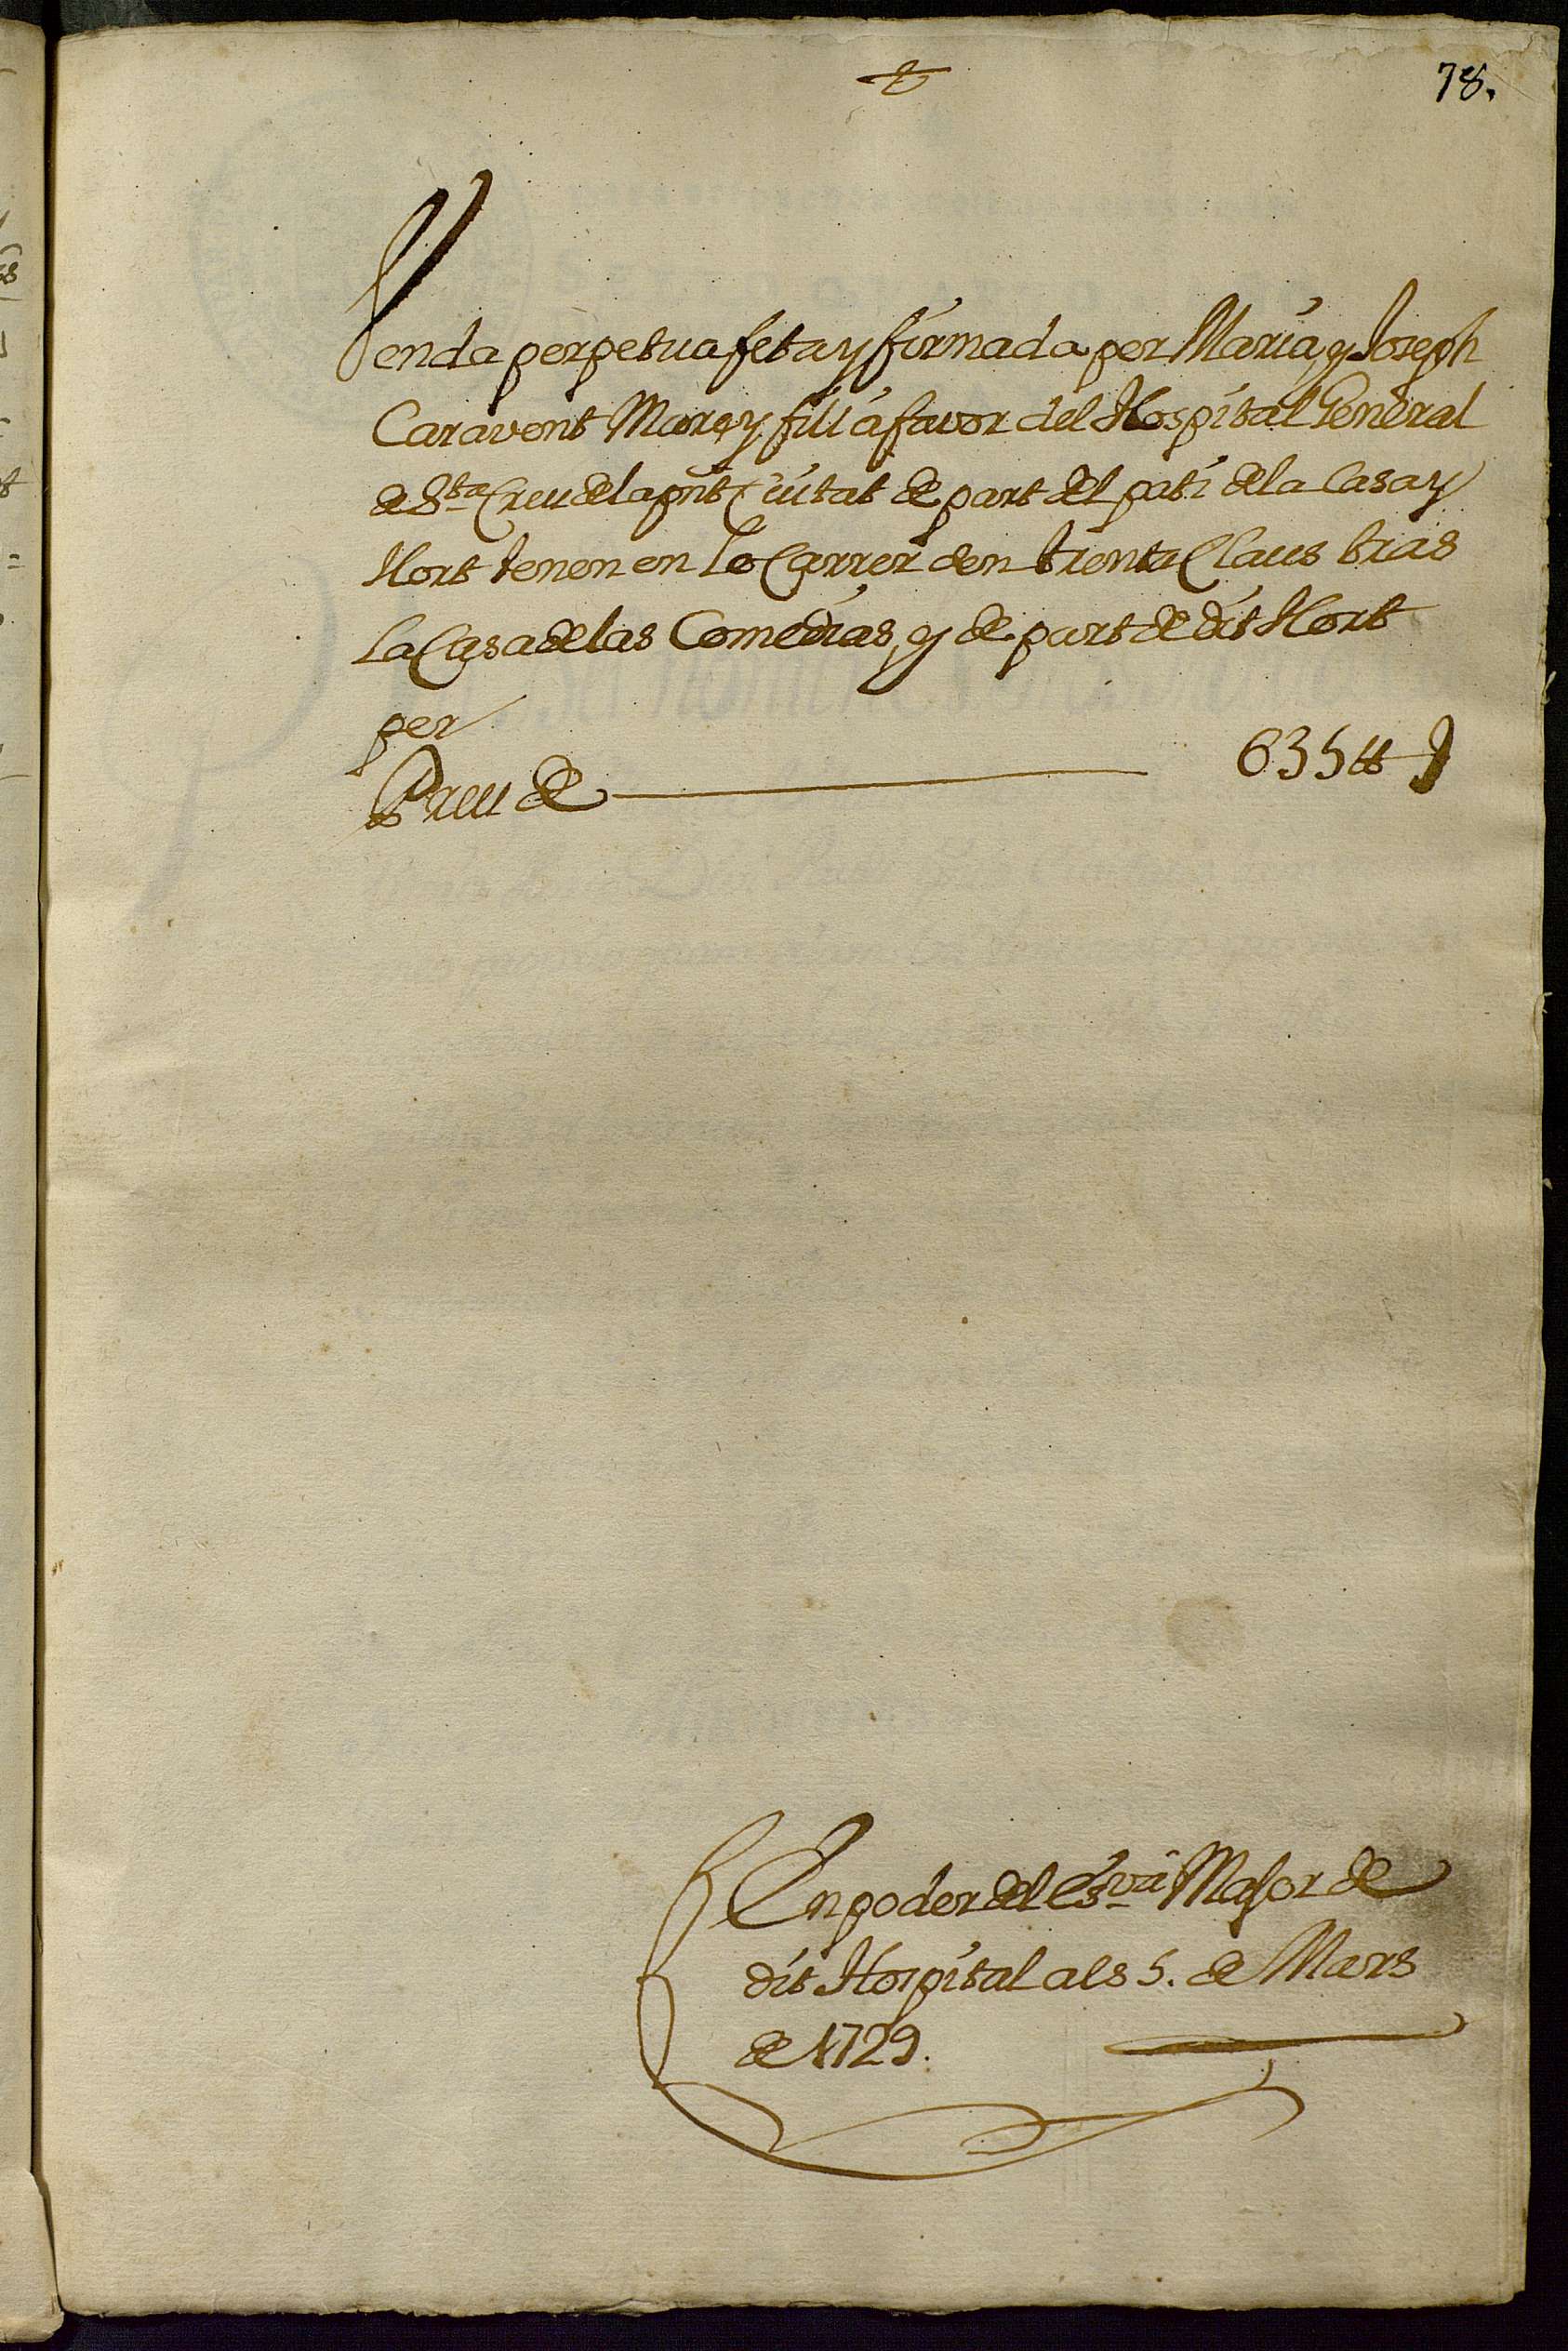 78.
Venda perpetua feta y firmada per Maria, y Joseph
Caravent Mare y fill á favor del Hospital General
de Sta. Creu dela pñt Ciutat de part del pati dela Casa y
Hort tenen en lo Carrer den trenta Claus tras
la Casa de las Comedias, y de part de dit Hort
per
Preu de 635 ℔
En poder del Esvá Major de
dit Hospital als 5. de Mars
de 1729.